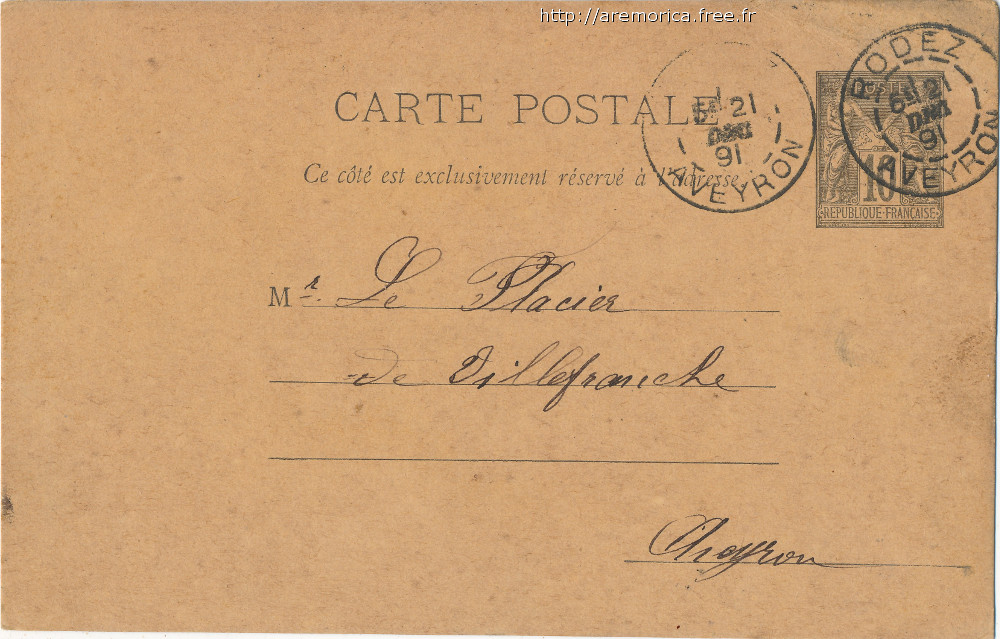 http://aremorica.free.fr
CARTE POSTALE
Ce côté est exclusivement réservé à l'adresse.
RODEZ
21
91
AVEYRON
21
91
AVEYRON
POSTE
10
REPUBLIQUE FRANÇAISE
Mr. Le Placier
de Villefranche
Aveyron